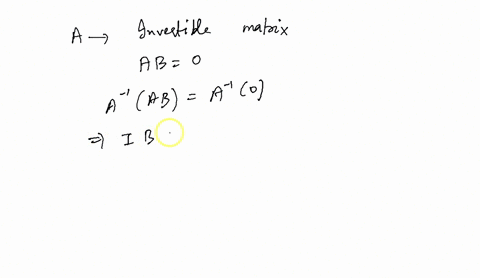 A → Invertible matrix
AB = 0
A⁻¹ (AB) = A⁻¹ (0)
⇒ I B